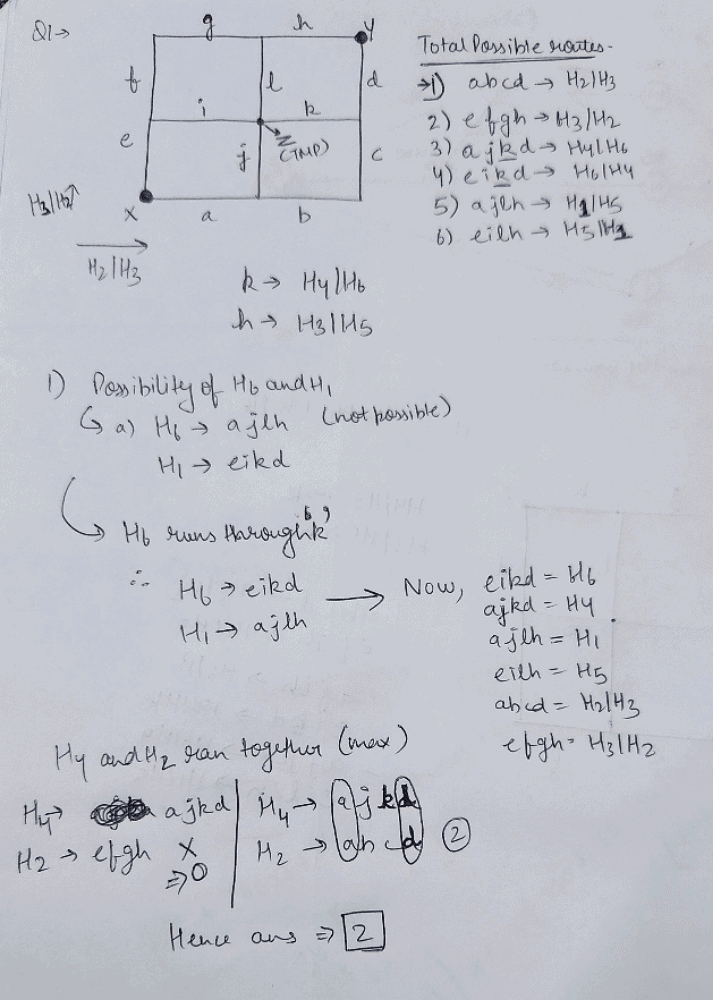 Q1→
g h
y
f l d
i k
Z
(TMP)
e j c
x
a b
H3/H2↑
H2/H3
Total Possible routes-
→1) abcd → H2/H3
2) efgh → H3/H2
3) ajkd → H4/H6
4) eikd → H6/H4
5) ajlh → H1/H5
6) eilh → H5/H1
k → H4/H6
h → H3/H5
1) Possibility of H6 and H1
↳ a) H6 → ajlh (not possible)
H1 → eikd
↳ H6 runs through 'k'
∴ H6 → eikd
H1 → ajlh
→ Now, eikd = H6
ajkd = H4
ajlh = H1
eilh = H5
abcd = H2/H3
efgh = H3/H2
H4 and H2 ran together (max)
H4→ ajkd
H2 → efgh X
⇒0
H4 → ajkd
H2 → abcd ②
Hence ans ⇒ 2